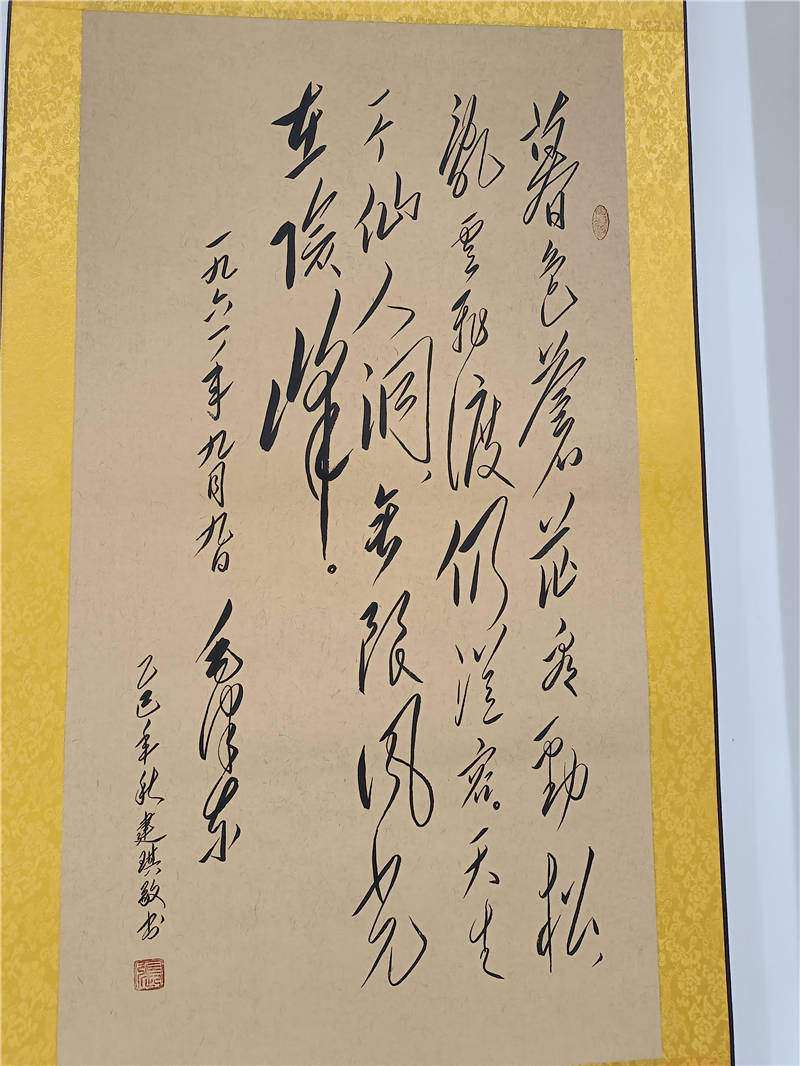 暮色蒼茫看劲松，
亂雲飛渡仍從容。天生
一个仙人洞，無限風光
在險峰。
一九六一年九月九日 毛泽东
乙巳年秋建琪敬书